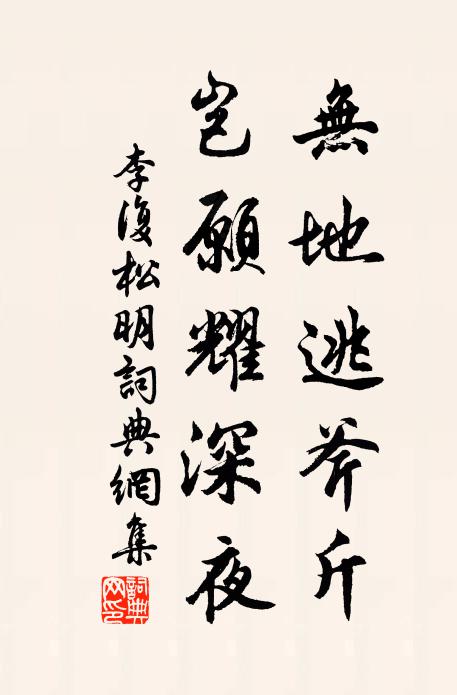 無地逃斧斤
豈願耀深夜
李復松明詞典網集
詞典網印